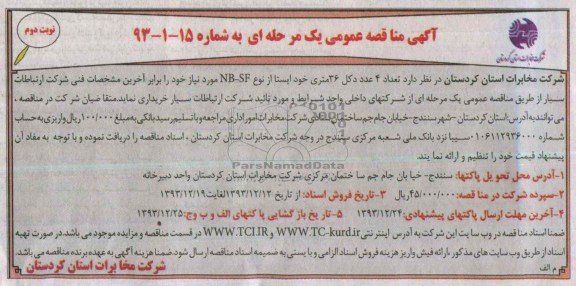 نوبت دوم
آگهی مناقصه عمومی یک مرحله ای به شماره ۱۵-۱-۹۳
شرکت مخابرات استان کردستان
شرکت مخابرات استان کردستان در نظر دارد تعداد ۴ عدد دکل ۳۶متری خود ایستا از نوع NB-SF مورد نیاز خود را برابر آخرین مشخصات فنی شرکت ارتباطات
سیار از طریق مناقصه عمومی یک مرحله ای از شرکتهای داخلی واجد شرایط و مورد تائید شرکت ارتباطات سیار خریداری نماید.متقاضیان شرکت در مناقصه ،
می توانند به آدرس:استان کردستان -شهرسنندج-خیابان جام جم ساختمان شرکت مخابرات امور اداری مراجعه و با تسلیم رسید بانکی به مبلغ ۱۰۰/۰۰۰ ریال واریزی به حساب
شماره ۰۱۰۶۱۱۲۹۳۶۰۰۰سیبا نزد بانک ملی شعبه مرکزی سنندج در وجه شرکت مخابرات استان کردستان ، اسناد مناقصه را دریافت نموده و با توجه به مفاد آن
پیشنهاد قیمت خود را تنظیم و ارائه نمایند.
۱-آدرس محل تحویل پاکتها: سنندج- خیابان جام جم ساختمان مرکزی شرکت مخابرات استان کردستان واحد دبیرخانه
۲-سپرده شرکت در مناقصه:۴۵/۰۰۰/۰۰۰ریال ۳-تاریخ فروش اسناد: از تاریخ ۱۳۹۳/۱۲/۱۳لغایت۱۳۹۳/۱۲/۱۹
۴-آخرین مهلت ارسال پاکتهای پیشنهادی:۱۳۹۳/۱۲/۲۴ ۵-تاریخ باز گشایی پاکتهای الف و ب وج:۱۳۹۳/۱۲/۲۵
ضمنا اسناد مناقصه در وب سایت این شرکت به آدرس اینترنتی WWW.TC-kurd.ir و WWW.TCI.IR در قسمت مناقصه و مزایده موجود می باشد.در صورت تهیه
اسناد از طریق وب سایت های مذکور ،ارائه فیش واریز هزینه فروش اسناد الزامی و بایستی به ضمیمه اسناد مناقصه ارسال شود.ضمنا هزینه آگهی به عهده برنده مناقصه می باشد.
م الف
شرکت مخابرات استان کردستان
ParsNamadData